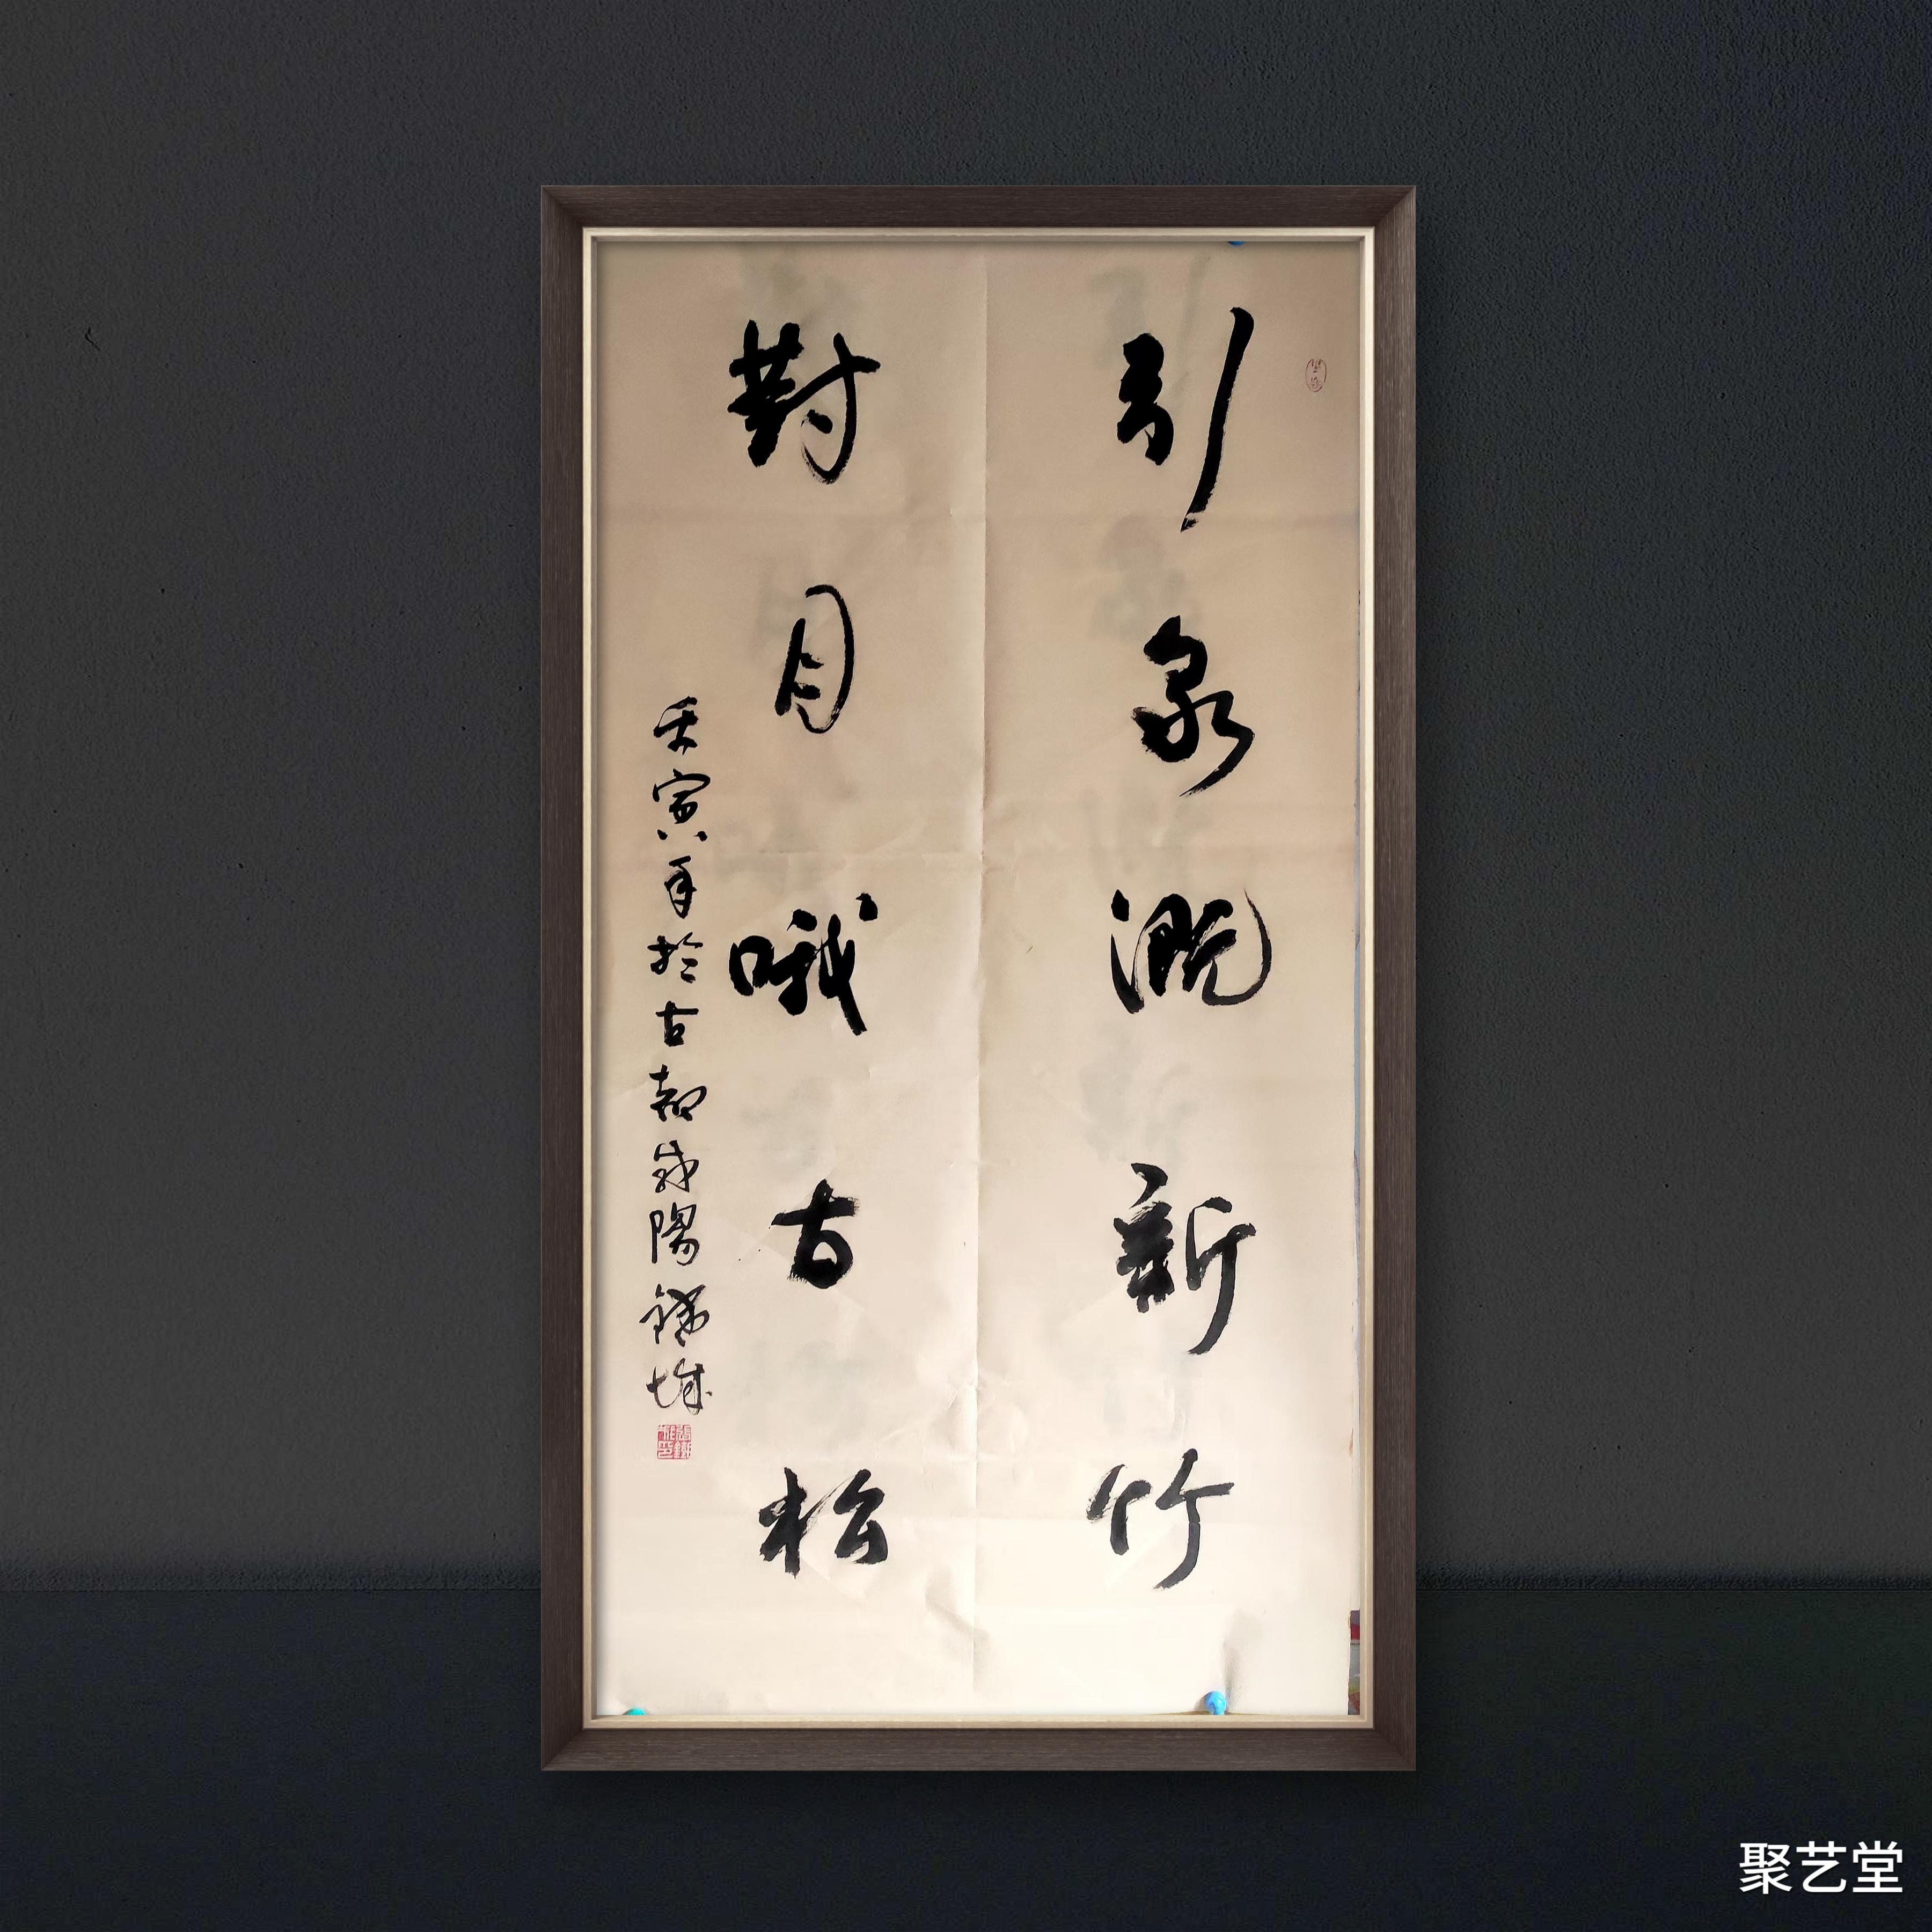 引泉溉新竹
對月哦古松
壬寅年於古都咸陽鐵城
聚艺堂